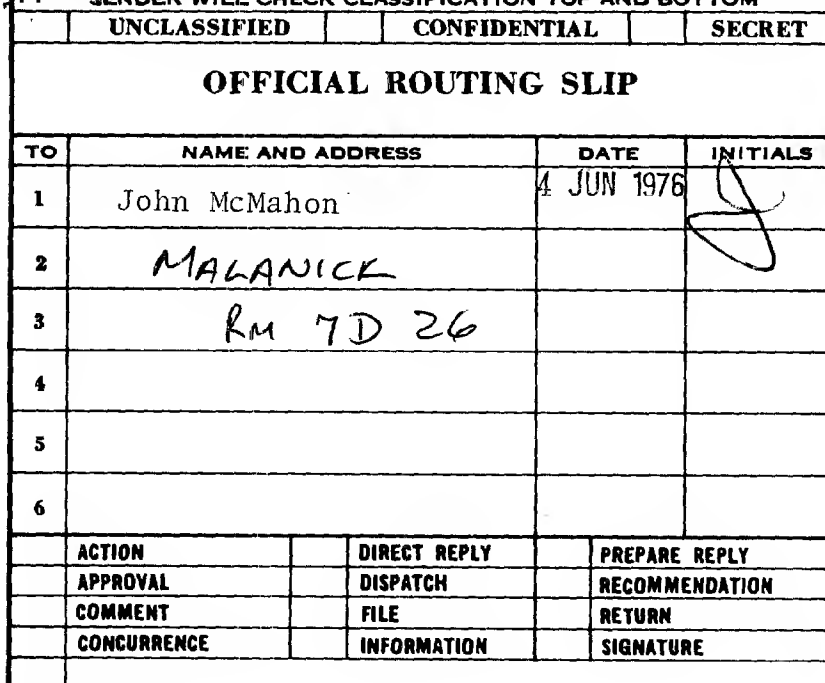 SENDER WILL CHECK CLASSIFICATION TOP AND BOTTOM
UNCLASSIFIED CONFIDENTIAL SECRET
OFFICIAL ROUTING SLIP
TO NAME AND ADDRESS DATE INITIALS
1 John McMahon 4 JUN 1976
2 MALANICK
3 RM 7D 26
4
5
6
ACTION DIRECT REPLY PREPARE REPLY
APPROVAL DISPATCH RECOMMENDATION
COMMENT FILE RETURN
CONCURRENCE INFORMATION SIGNATURE